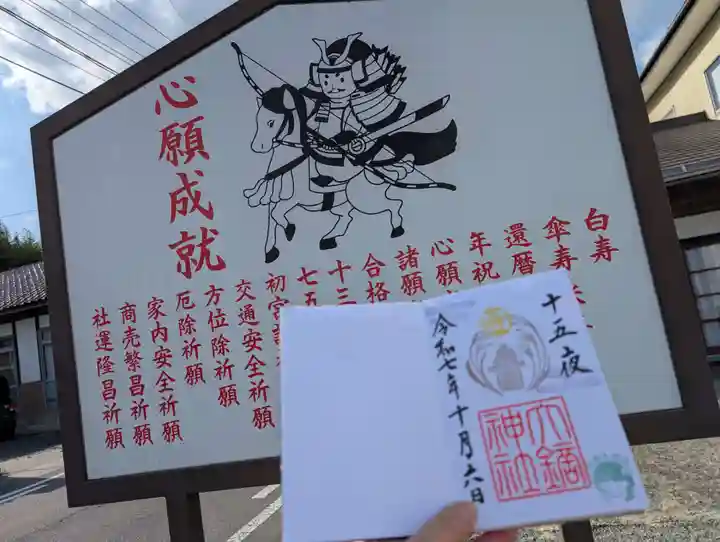 心願成就
白寿
傘寿
還暦
年祝
心願
諸願
合格
十三
七五
初宮
交通安全祈願
方位除祈願
厄除祈願
家内安全祈願
商売繁昌祈願
社運隆昌祈願
十五夜
令和七年十月六日
神社